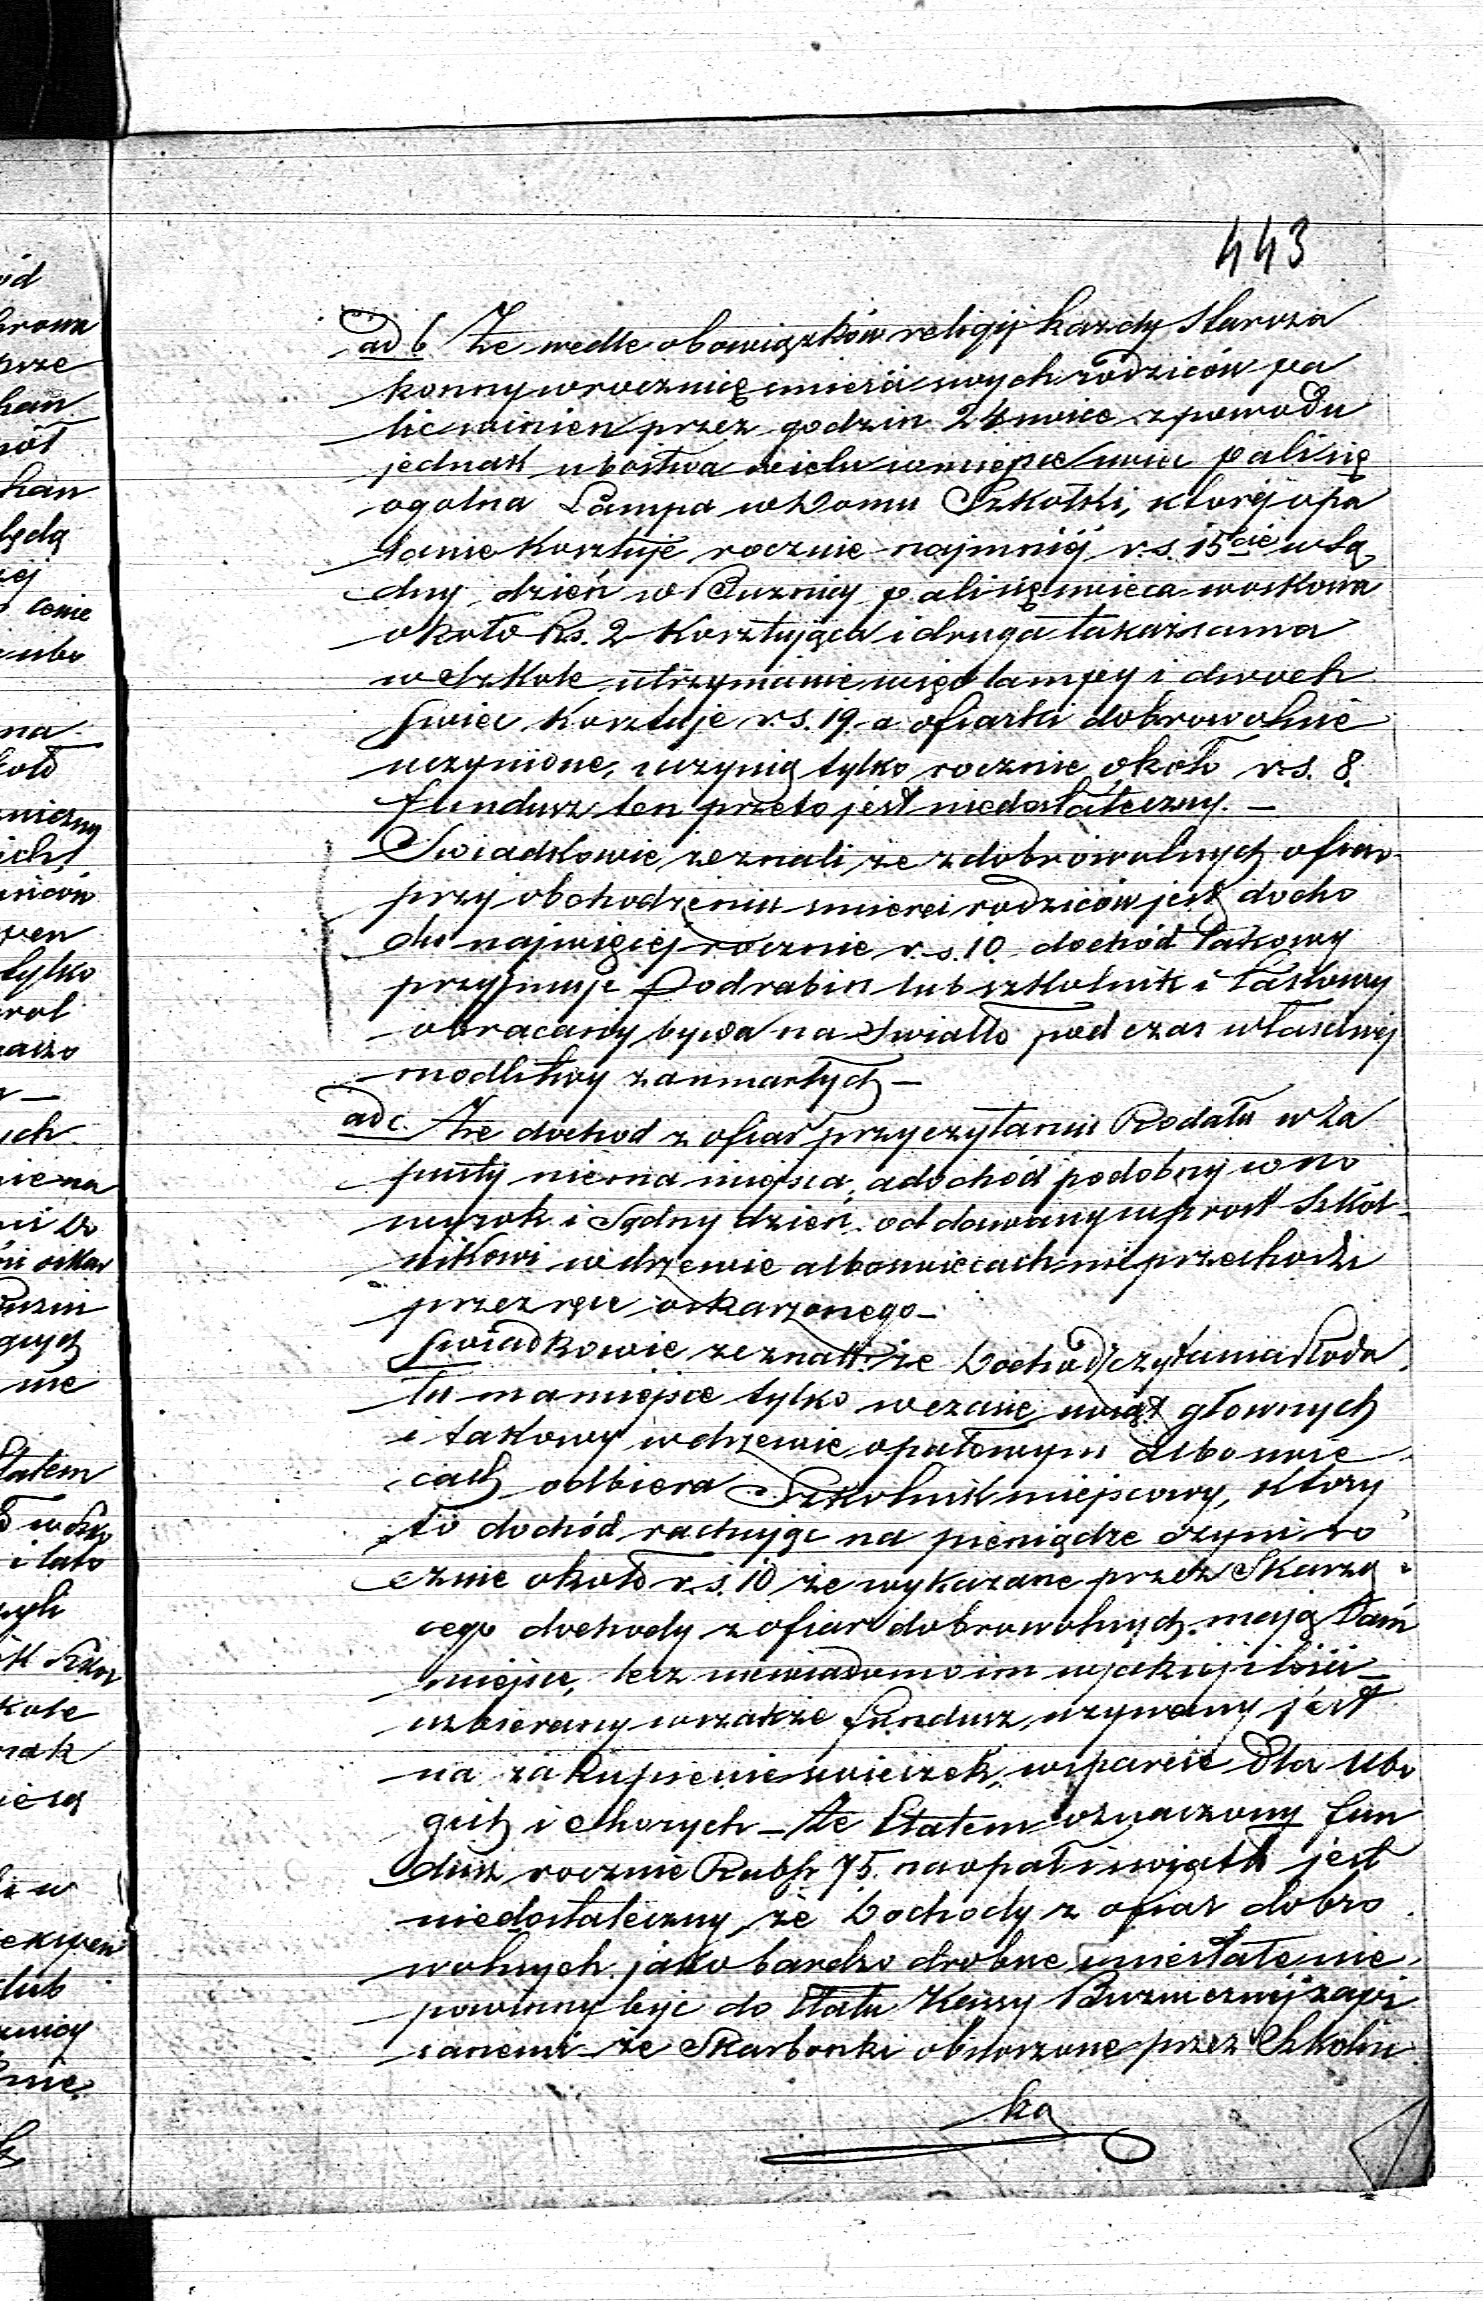 443
ad b Że wedle obowiązków religij każdy staroza
konny w rocznicę smierci swych rodziców pa
lic winien przez godzin 24 swiece z powodu
jednak ubostwa wielu w miejsce swiec pali się
ogolna Lampa w Domu Szkolski, ktorej opa
lanie kosztuje rocznie najmniéj r.s. 15 cie w Są
dny dzień w Bużnicy pali się swieca woskowa
około Rs. 2 kosztująca i druga takaż sama
w Szkole utrzymanie więc lampy i dwoch
swiec kosztuje r.s. 19 a ofiarki dobrowolnie
uczynione, uczynią tylko rocznie około r.s. 8.
fundusz ten przeto jest niedostateczny. —
Swiadkowie zeznali że z dobrowolnych ofiar
przy obchodzeniu smierci rodziców jest docho
du najwięcej rocznie r.s. 10 dochód takowy
przyjmuje Podrabin lub szkolnik i takowy
obracany bywa na swiatło podczas własciwej
modlitwy za umarłych —
ad c. Że dochod z ofiar przy czytaniu Rodału w Za
pusty niema miejsca, a dochód podobny w no
wy rok i Sądny dzień oddawany wprost Szkól-
nikowi w drzewie albo swiecach nie przechodzi
przez ręce oskarzonego —
Swiadkowie zeznali że Dochód czytania Roda
łu ma miejsce tylko w czasie swiąt głownych
i takowy w drzewie opałowym albo swie
cach odbiera Szkolnik miejscowy, ktory
to dochód rachując na pieniądze czyni ro
cznie około r.s. 10 że wykazane przez Skarżą
cego dochody z ofiar dobrowolnych mają tam
miejsce, lecz niewiadomo im w jakiej ilosci
uzbierany wszakże fundusz, uzywany jest
na zakupienie swieczek, wsparcie dla ubo
gich i chorych — Że Etatem oznaczony fun
dusz rocznie Rubsr 75. na opał i swiatło jest
niedostateczny, że Dochody z ofiar dobro
wolnych jako bardzo drobne i niestałe nie
powinny być do Etatu Kassy Bużnicznej zapi
sanemi że Skarbonki obnoszone przez Szkolni
ka